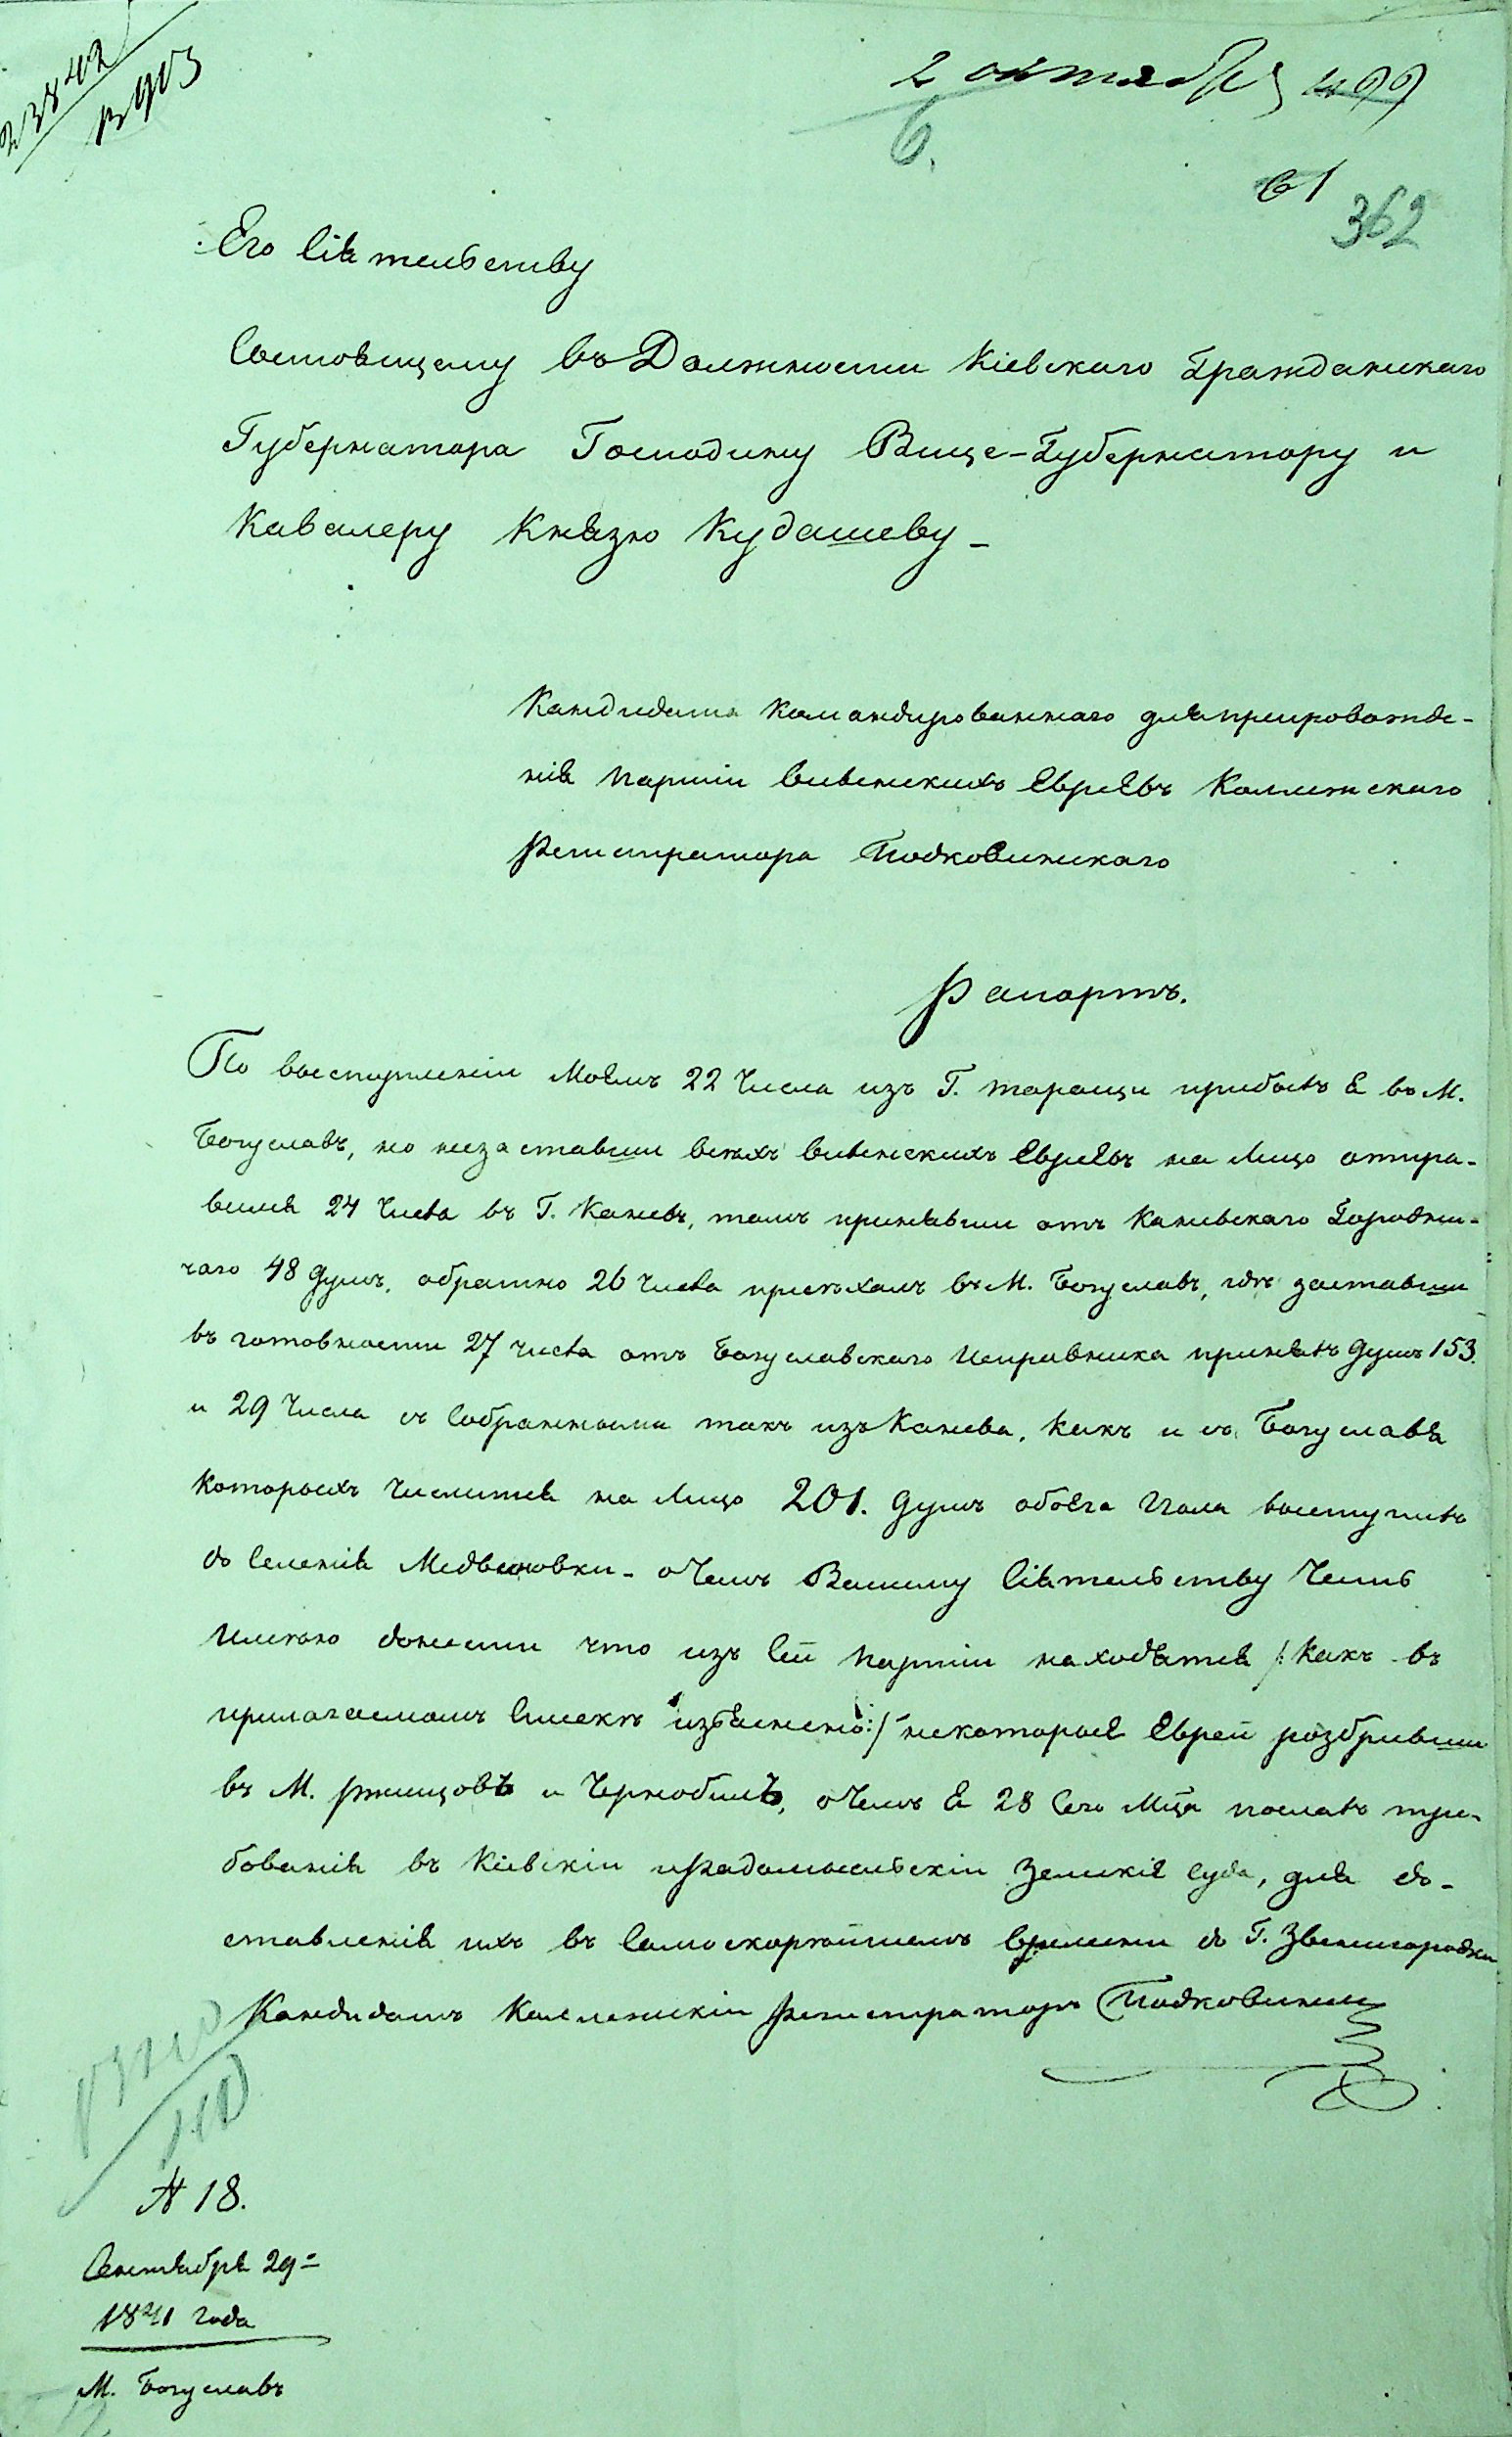 23842
2 октября
6.
61
362
Его Сіятельству
Состоящему въ Должности Кіевскаго Гражданскаго
Губернатора Господину Вице-Губернатору и
Кавалеру Князю Кудашеву -
Кандидата Командированнаго для препровожде-
нія партіи Евреевъ Коллежскаго
Регистратора Подковинскаго
Рапортъ.
По выступленіи Моемъ 22 Числа изъ Г. таращи прибылъ я въ М.
Богуславъ, но незаставши всѣхъ Евреевъ на Лицо отпра-
вился 24 Числа въ Г. Каневъ, тамъ принявши отъ Каневскаго Городни-
чаго 48 душъ, обратно 26 Числа пріѣхалъ въ М. Богуславъ, гдѣ заставши
въ готовности 27 числа отъ Богуславскаго Исправника принялъ душъ 153.
и 29 Числа съ Собранными такъ изъ Канева, какъ и съ Богуслава
которыхъ числится на Лицо 201. душъ обоего Пола выступилъ
до Селенія Медвиновки - о Чемъ Вашему Сіятельству Честь
имѣю донести что изъ Сей партіи находятся /: Какъ въ
прилагаемомъ Спискѣ изъяснено :/ некоторые Евреи розбривши
въ М. ржищовѣ и Чернобилѣ, о Чемъ Я 28 Сего Мца послалъ тре-
бованія въ Кіевскіи и Радомысльскіи Земскіе суда, для до-
ставленія ихъ въ Самоскорѣйшемъ времени до Г. Звенигородки
Кандидатъ Коллежскіи Регистраторъ Подковински
№ 18.
Сентября 29
1841 года
М. Богуславъ